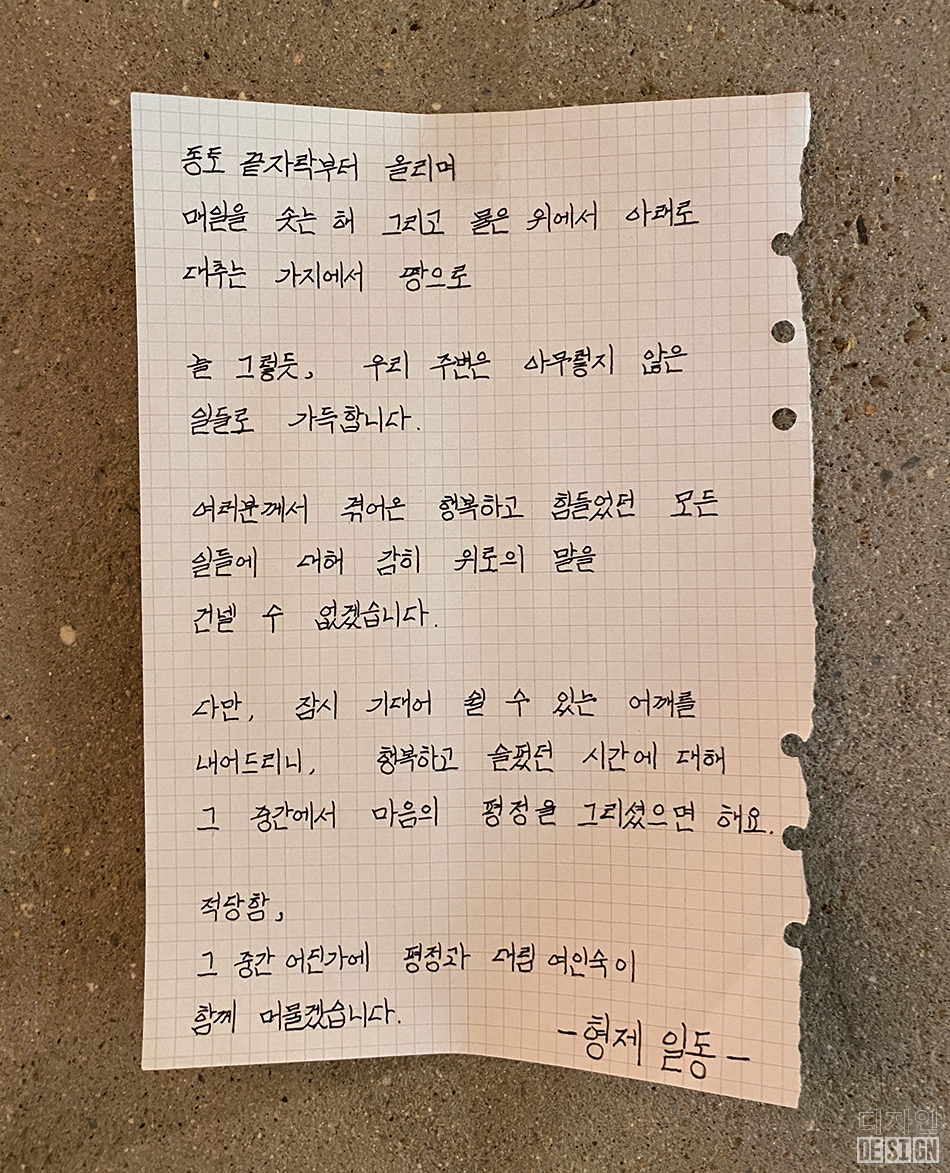 동토 끝자락부터 올리며
매일을 솟는 해 그리고 물은 위에서 아래로
대추는 가지에서 땅으로
늘 그렇듯, 우리 주변은 아무렇지 않은
일들로 가득합니다.
여러분께서 겪어온 행복하고 힘들었던 모든
일들에 대해 감히 위로의 말을
건넬 수 없겠습니다.
다만, 잠시 기대어 쉴 수 있는 어깨를
내어드리니, 행복하고 슬펐던 시간에 대해
그 중간에서 마음의 평정을 그리셨으면 해요.
적당함,
그 중간 어딘가에 평정과 대립 여인숙이
함께 머물겠습니다.
-형제 일동-
디자인
DESIGN